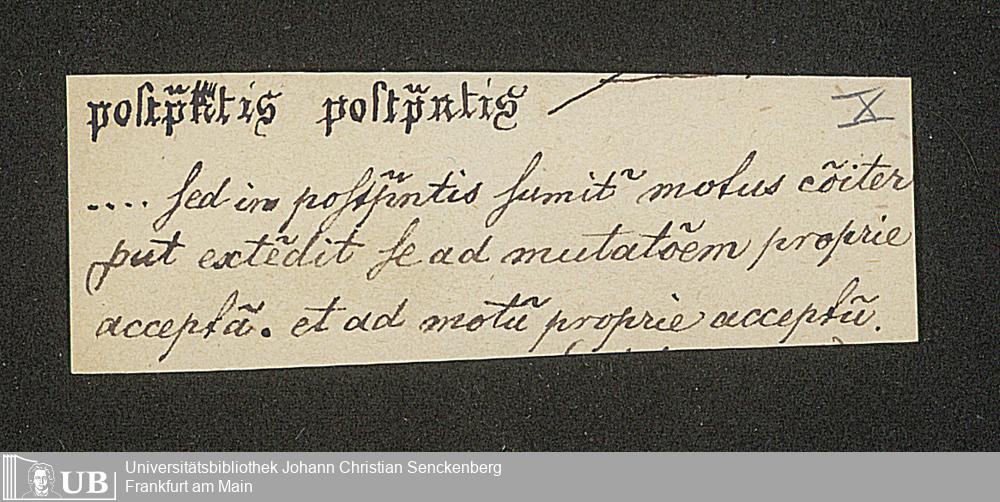 poſtp̈ntis poſtp̈ntis X
.... ſed in poſtp̈ntis ſumit᷑ motus cōiter
put extēdit ſe ad mutatōem proprie
acceptā. et ad motū proprie acceptū.
UB Universitätsbibliothek Johann Christian Senckenberg
Frankfurt am Main